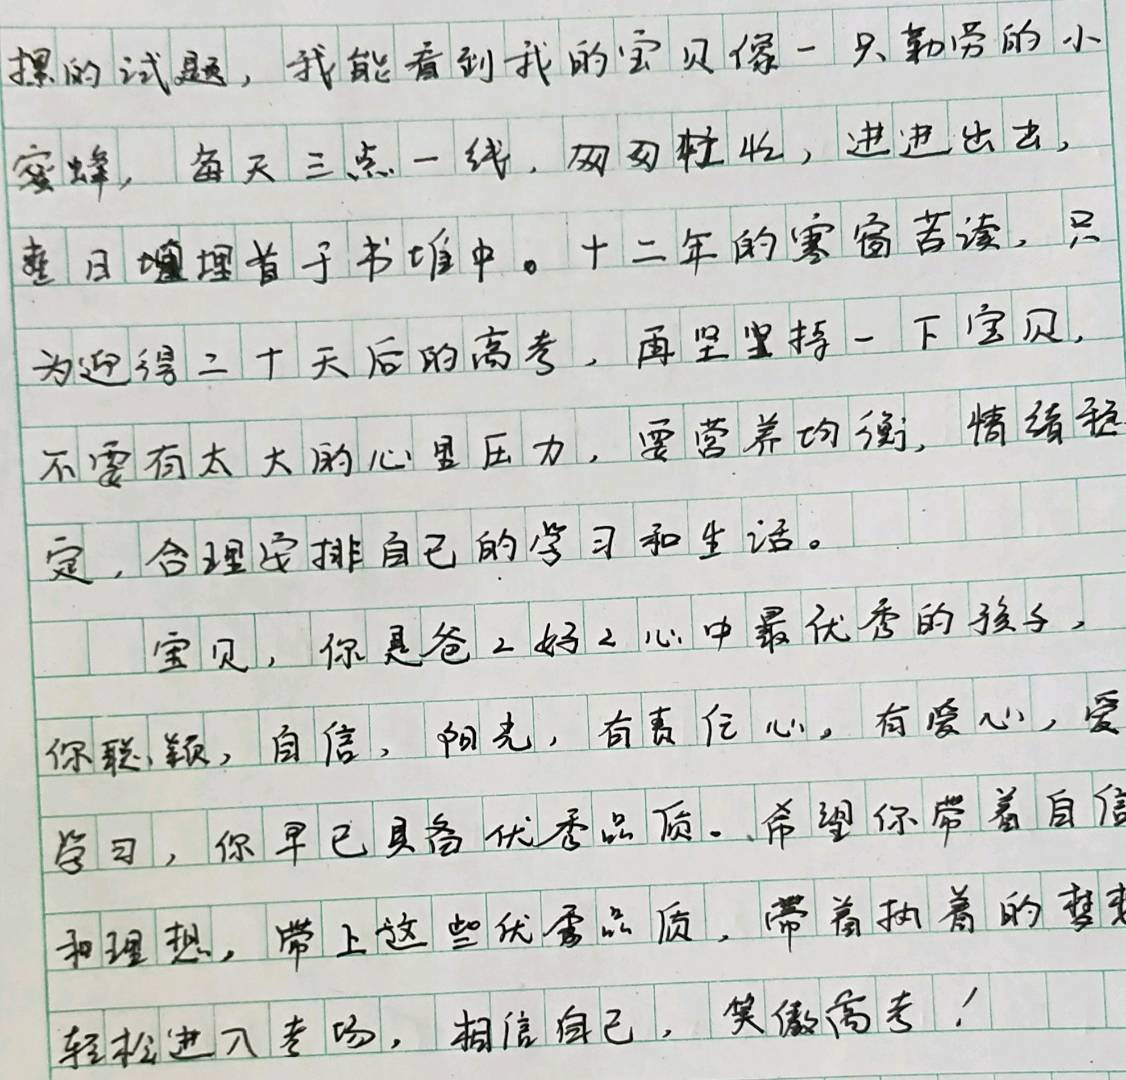 摞的试题，我能看到我的宝贝像一只勤劳的小
蜜蜂，每天三点一线，匆匆忙忙，进进出出，
整日埋首于书堆中。十二年的寒窗苦读，只
为迎得二十天后的高考，再坚坚持一下宝贝，
不要有太大的心里压力，要营养均衡，情绪稳
定，合理安排自己的学习和生活。
宝贝，你是爸2妈2心中最优秀的孩子，
你聪颖，自信，阳光，有责任心。有爱心，爱
学习，你早已具备优秀品质。希望你带着自信
和理想，带上这些优秀品质，带着执着的梦想
轻松进入考场，相信自己，笑傲高考！